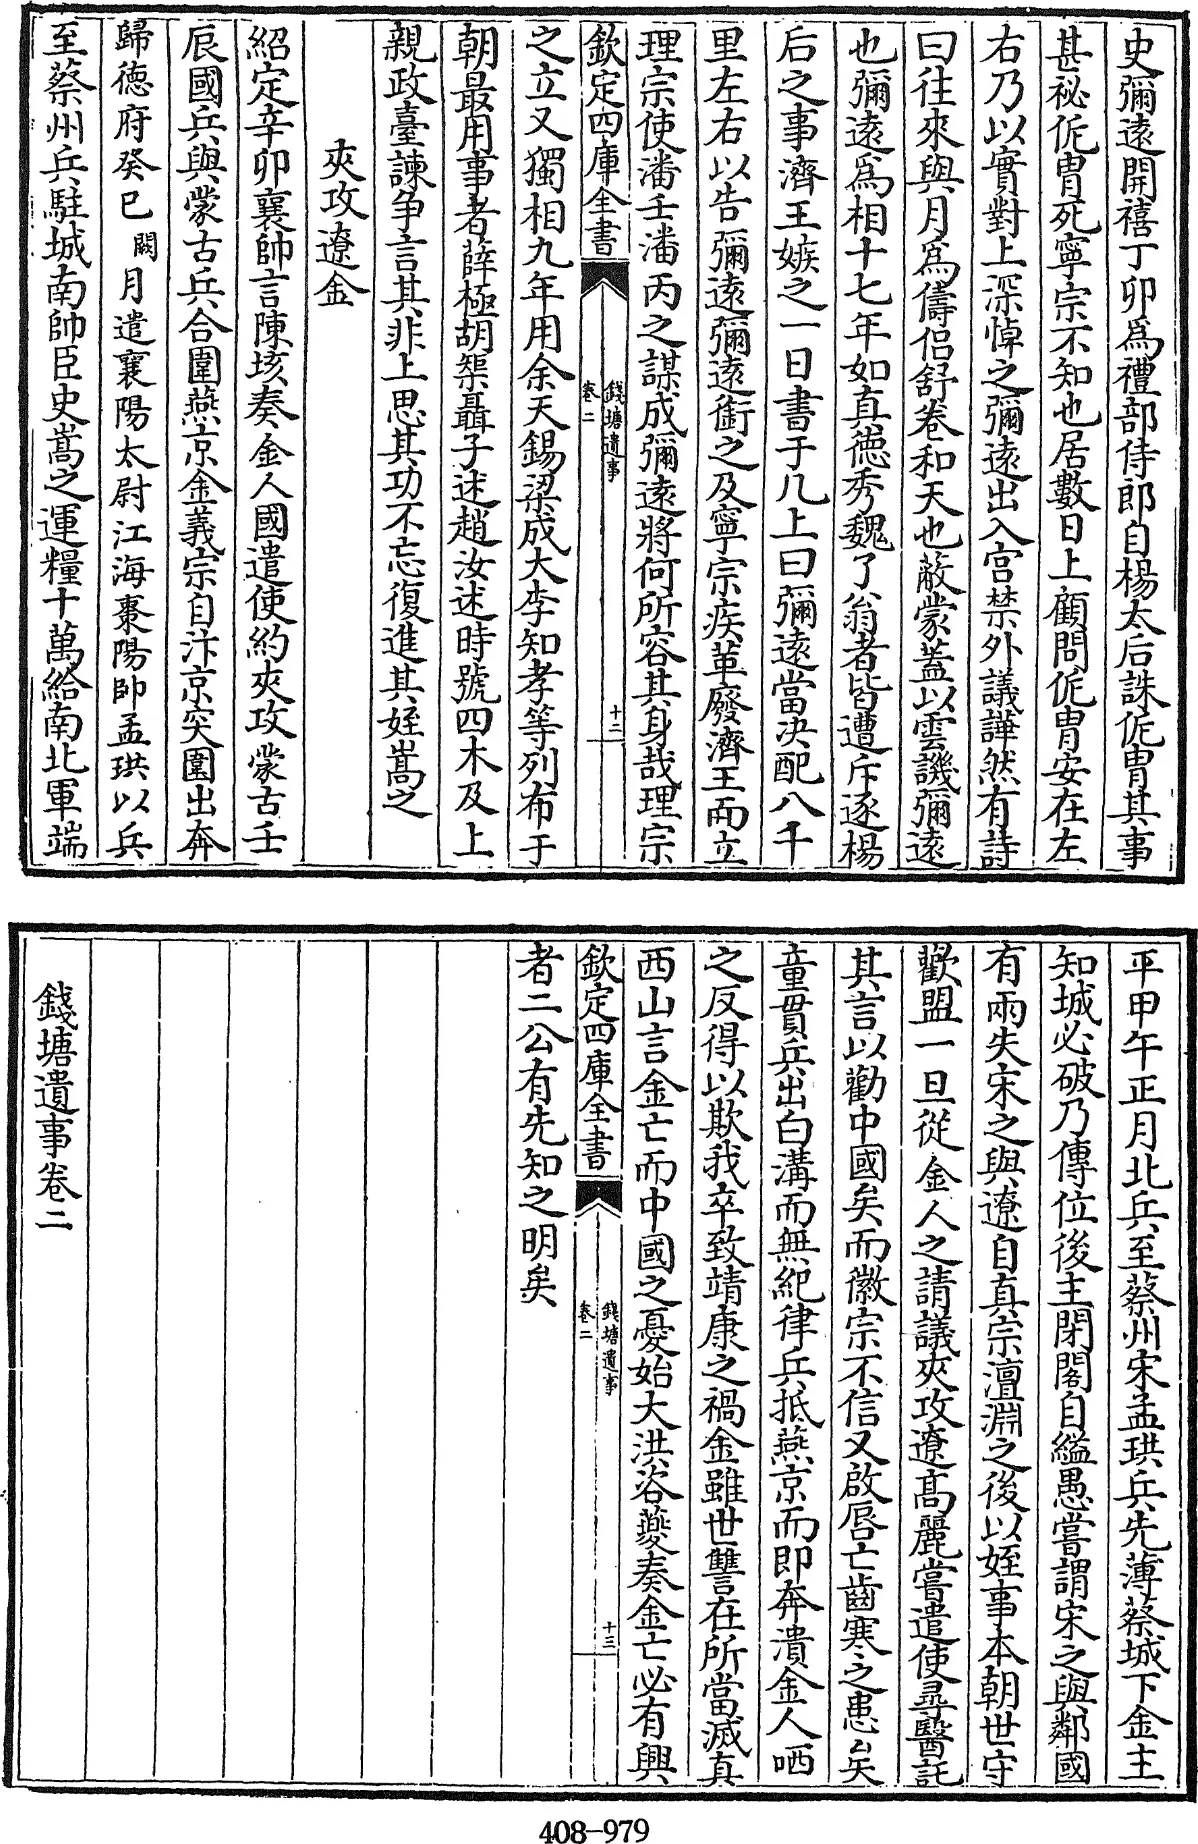 史彌遠開禧丁卯爲禮部侍郎自楊太后誅侂胄其事
甚祕侂胄死寧宗不知也居數日上顧問侂胄安在左
右乃以實對上深悼之彌遠出入宫禁外議譁然有詩
曰往來與月爲儔侣舒卷和天也蔽蒙蓋以雲譏彌遠
也彌遠爲相十七年如真徳秀魏了翁者皆遭斥逐楊
后之事濟王嫉之一日書于几上曰彌遠當决配八千
里左右以告彌遠彌遠銜之及寧宗疾革廢濟王而立
理宗使潘壬潘丙之謀成彌遠將何所容其身哉理宗
欽定四庫全書
錢塘遺事
卷二
十二
之立又獨相九年用余天錫梁成大李知孝等列布于
朝最用事者薛極胡榘聶子述趙汝述時號四木及上
親政臺諫争言其非上思其功不忘復進其姪嵩之
夾攻遼金
紹定辛卯襄帥言陳垓奏金人國遣使約夾攻蒙古壬
辰國兵與蒙古兵合圍燕京金義宗自汴京突圍出奔
歸徳府癸巳闕月遣襄陽太尉江海棗陽帥孟珙以兵
至蔡州兵駐城南帥臣史嵩之運糧十萬給南北軍端
平甲午正月北兵至蔡州宋孟珙兵先薄蔡城下金主
知城必破乃傳位後主閉閣自縊愚嘗謂宋之與鄰國
有兩失宋之與遼自真宗澶淵之後以姪事本朝世守
歡盟一旦從金人之請議夾攻遼髙麗嘗遣使尋醫託
其言以勸中國矣而徽宗不信又啟唇亡齒寒之患矣
童貫兵出白溝而無紀律兵抵燕京而即奔潰金人哂
之反得以欺我卒致靖康之禍金雖世讐在所當滅真
西山言金亡而中國之憂始大洪咨夔奏金亡必有興
欽定四庫全書
錢塘遺事
卷二
十三
者二公有先知之明矣
錢塘遺事卷二
408-979